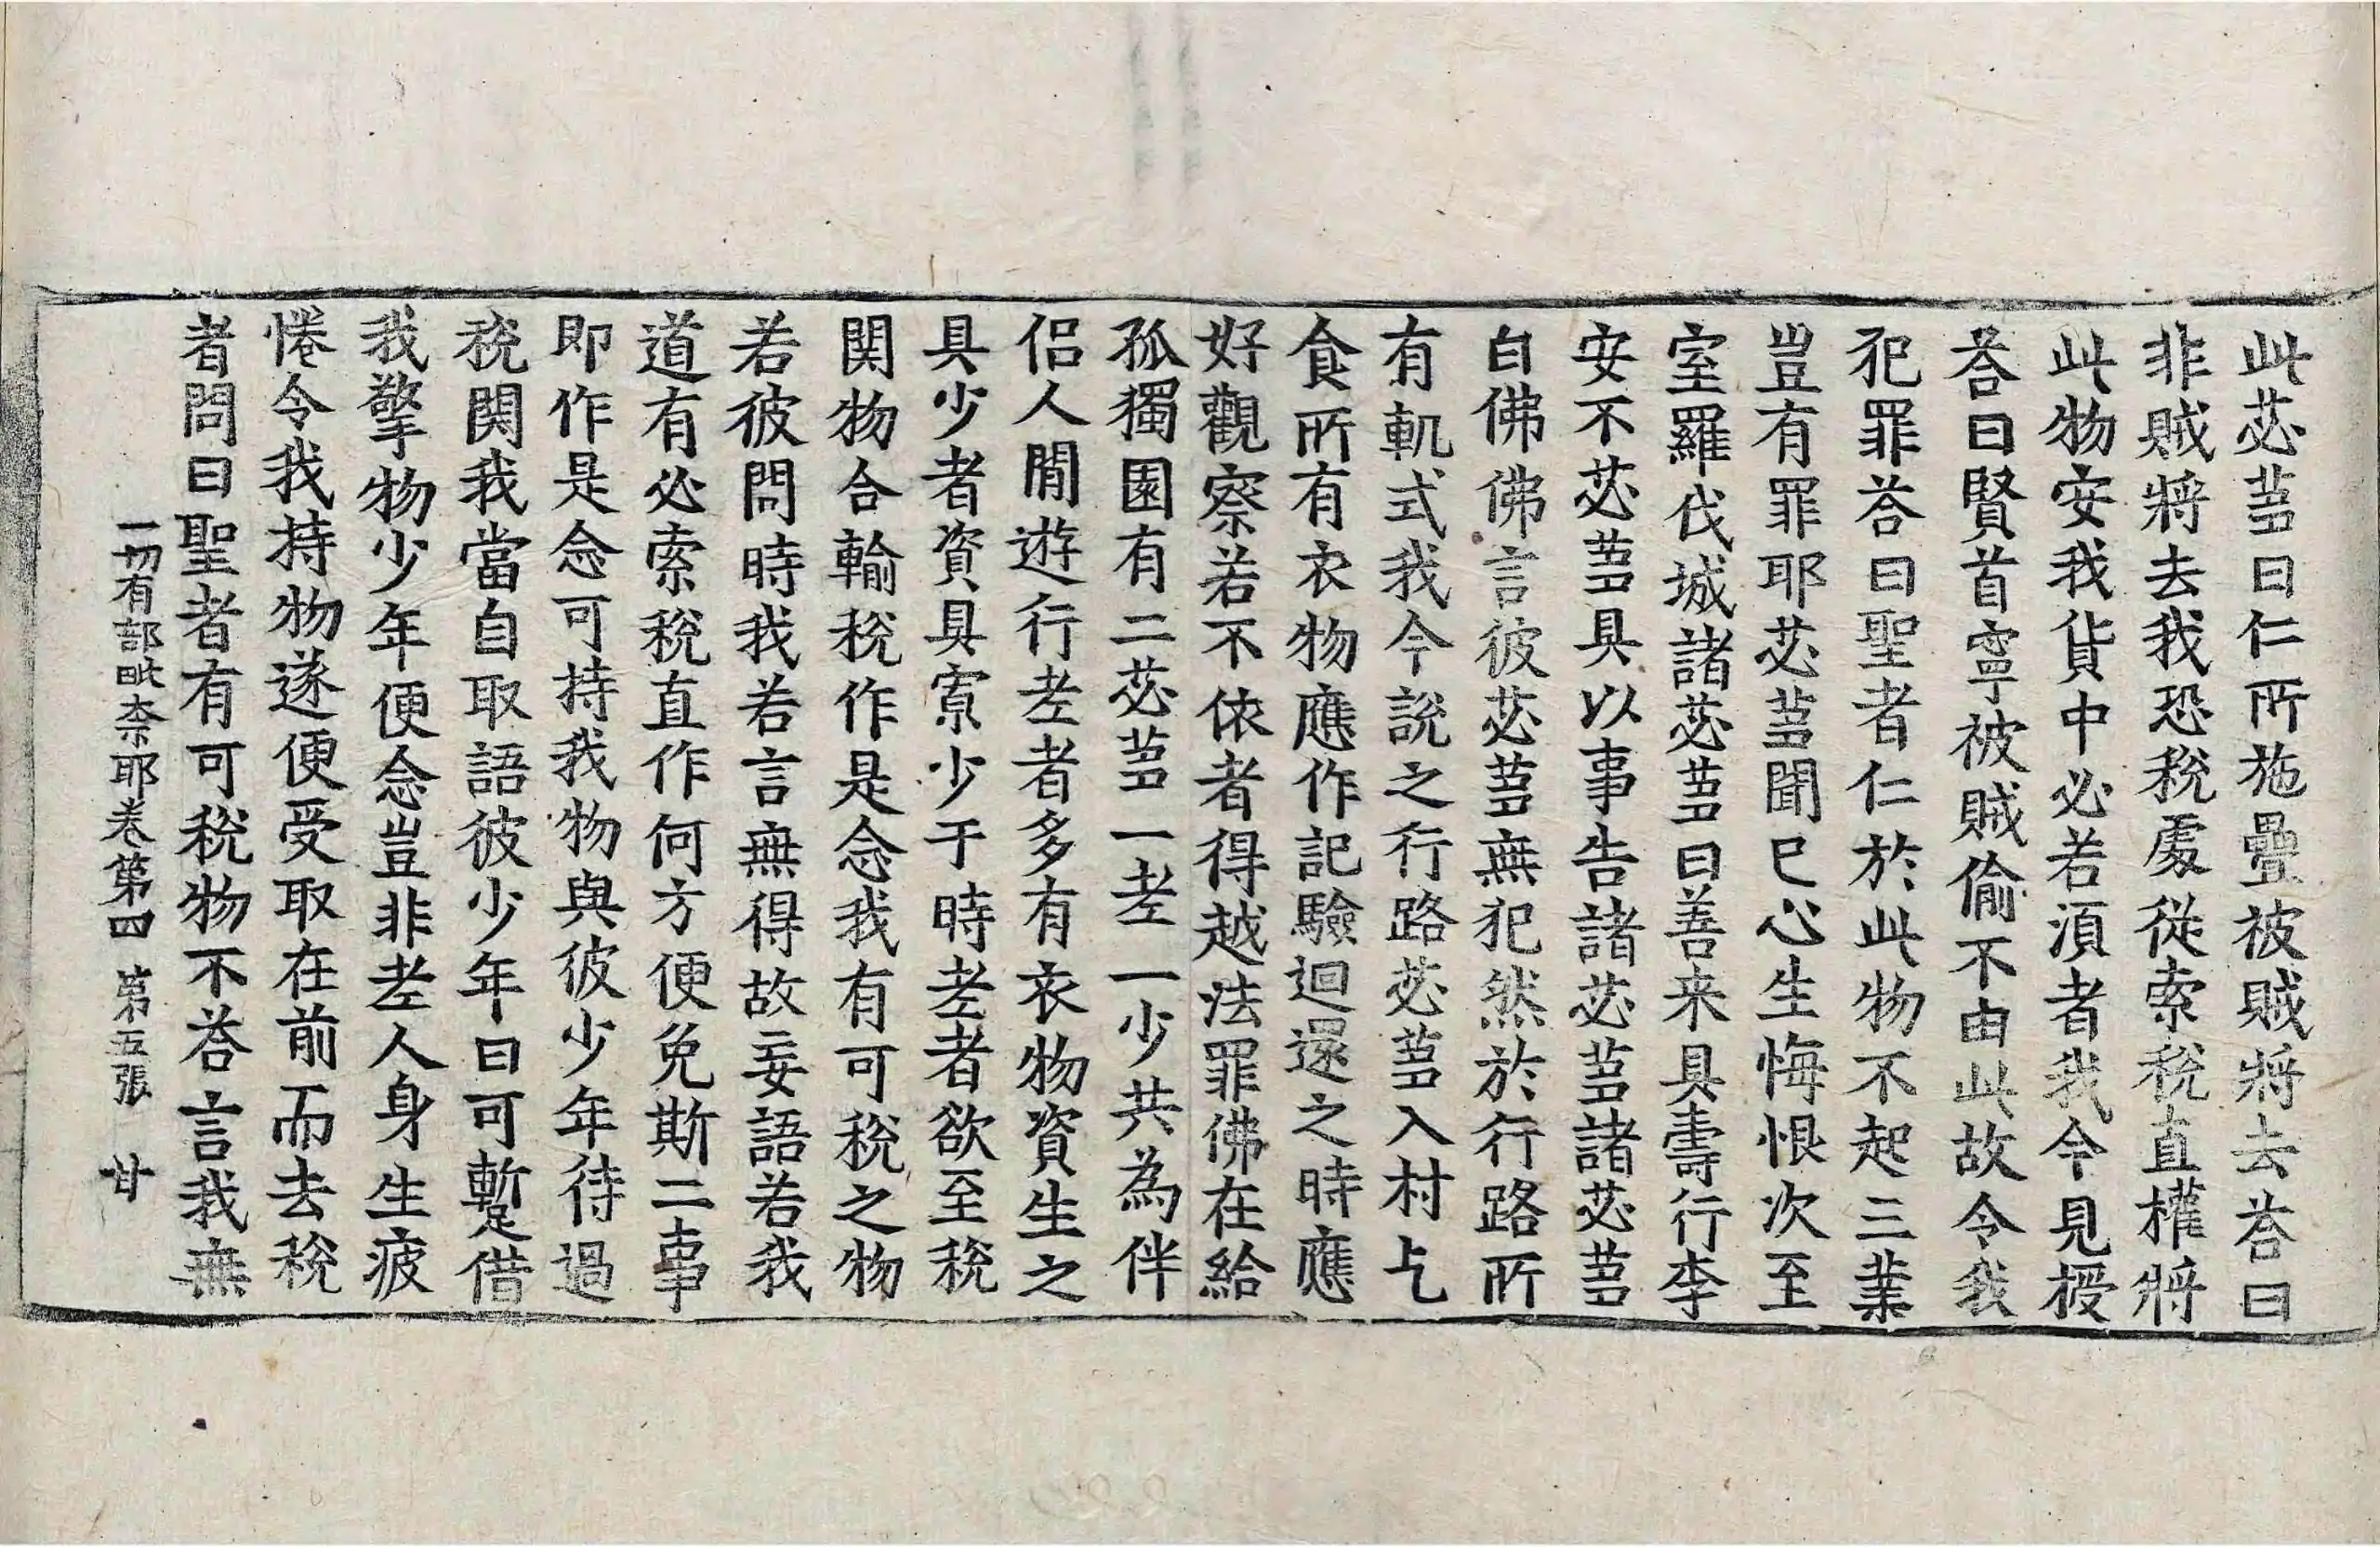 此苾蒭曰仁所施疊被賊將去荅曰
非賊將去我恐稅處從索稅直權將
此物安我貨中必若湏者我令見授
荅曰賢首寧被賊偷不由此故令我
犯罪荅曰聖者仁於此物不起三業
豈有罪耶苾蒭聞已心生悔恨次至
室羅伐城諸苾蒭曰善来具壽行李
安不苾蒭具以事告諸苾蒭諸苾蒭
白佛佛言彼苾蒭無犯然於行路所
有軌式我今說之行路苾蒭入村乞
食所有衣物應作記驗迴還之時應
好觀察若不依者得越法罪佛在給
孤獨園有二苾蒭一老一少共為伴
侣人間遊行老者多有衣物資生之
具少者資具寡少于時老者欲至稅
関物合輸稅作是念我有可稅之物
若彼問時我若言無得故妄語若我
道有必索稅直作何方便免斯二事
即作是念可持我物與彼少年待過
稅関我當自取語彼少年曰可暫借
我擎物少年便念豈非老人身生疲
惓令我持物遂便受取在前而去稅
者問曰聖者有可稅物不荅言我無
一切有部毗奈耶卷第四　苐五張　甘